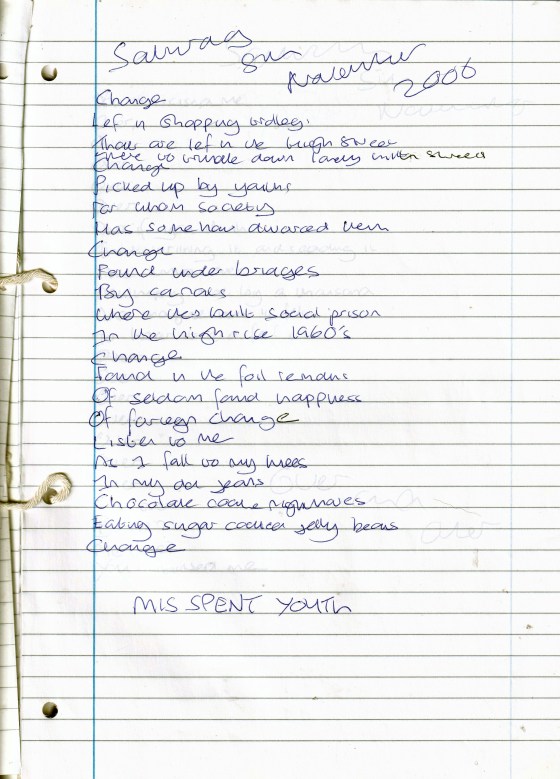 Saturday
8th
November
2006
Change
Left in Shopping trolleys
That are left in the high street
There to trundle down lonely streets
Change
Picked up by youths
For whom society
Has somehow divorced them
Change
Found under bridges
By canals
Where they built social prison
In the high rise 1960's
Change
Found in the foil remains
Of seldom found happiness
Of foreign change
Listen to me
As I fall to my knees
In my old jeans
Chocolate nightmares
Eating sugar coated jelly beans
Change
MIS SPENT YOUTH